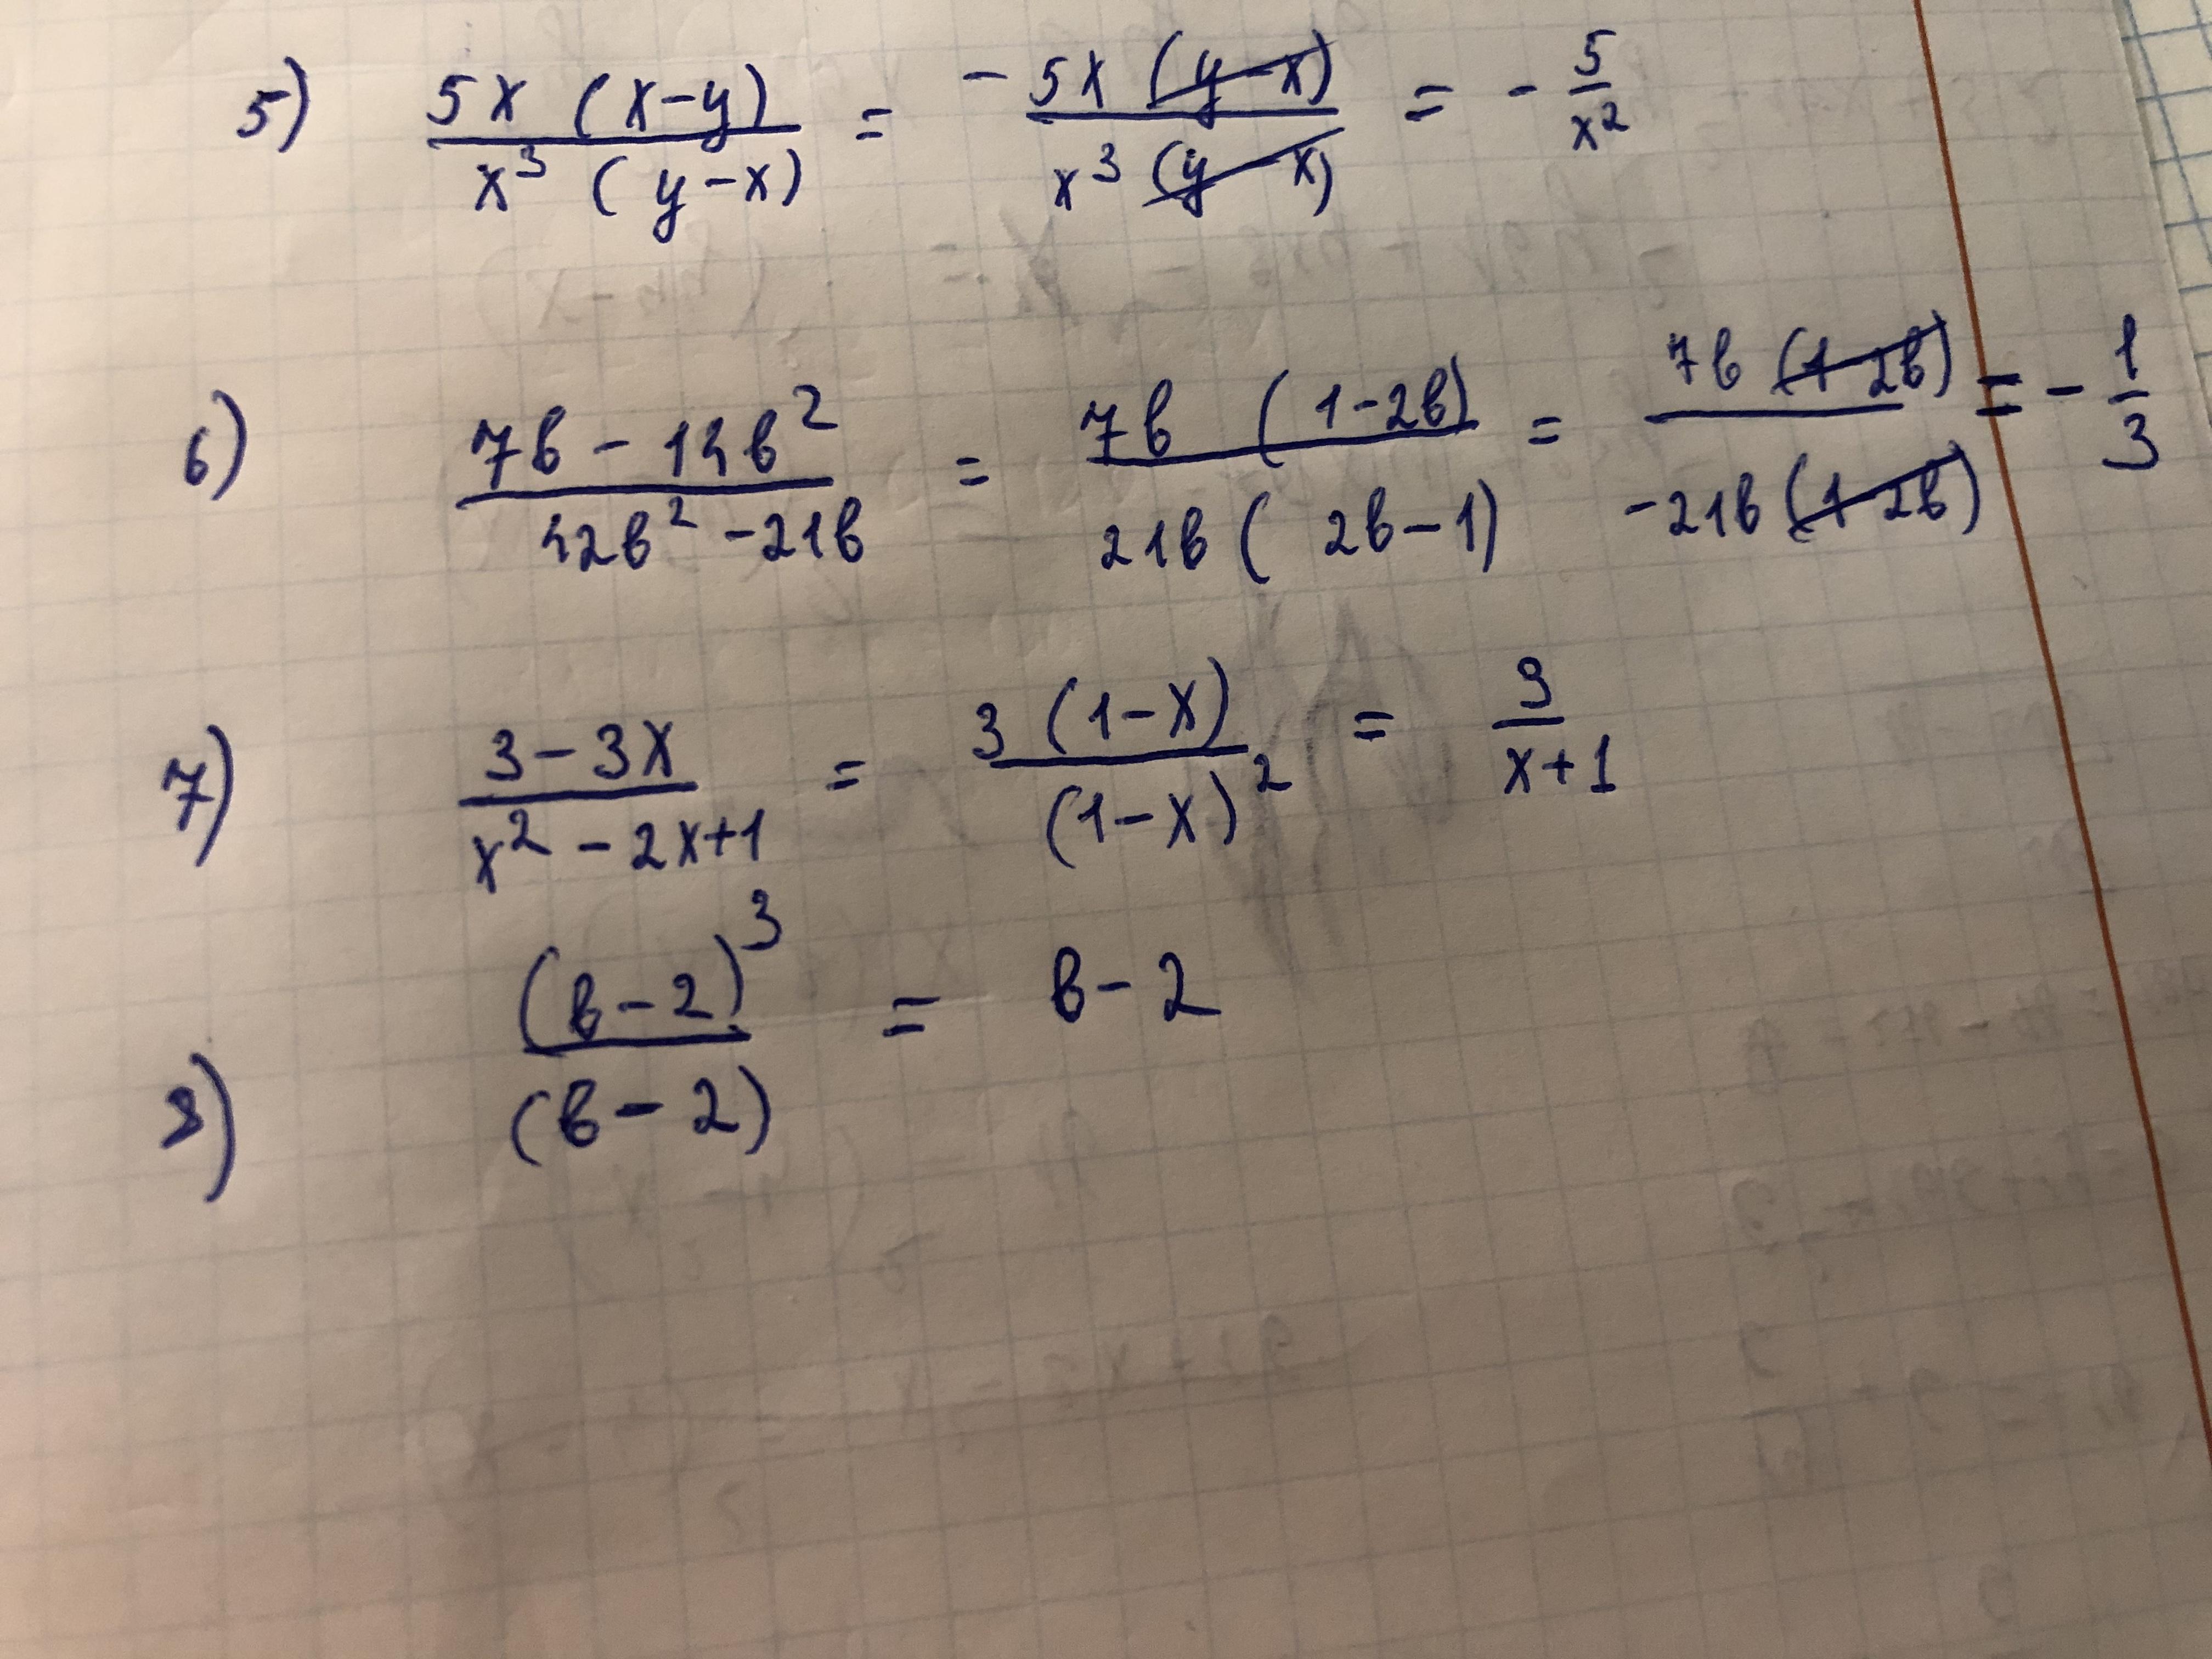 5) 5x (x-y) / x³ (y-x) = -5x (y-x) / x³ (y-x) = - 5/x²
6) 7b - 14b² / 42b² - 21b = 7b (1-2b) / 21b (2b-1) = 7b (1-2b) / -21b (1-2b) = - 1/3
7) 3-3x / x² - 2x+1 = 3 (1-x) / (1-x)² = 3 / x+1
8) (b-2)³ / (b-2) = b-2